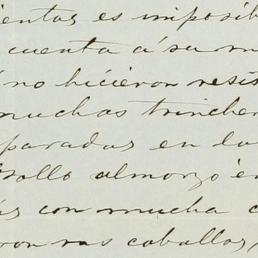 ientos es imposib
cuenta á su m
no hicieron resis
muchas trincher
paradas en la
Gallo almorzó e
as con mucha c
ron vas caballos,